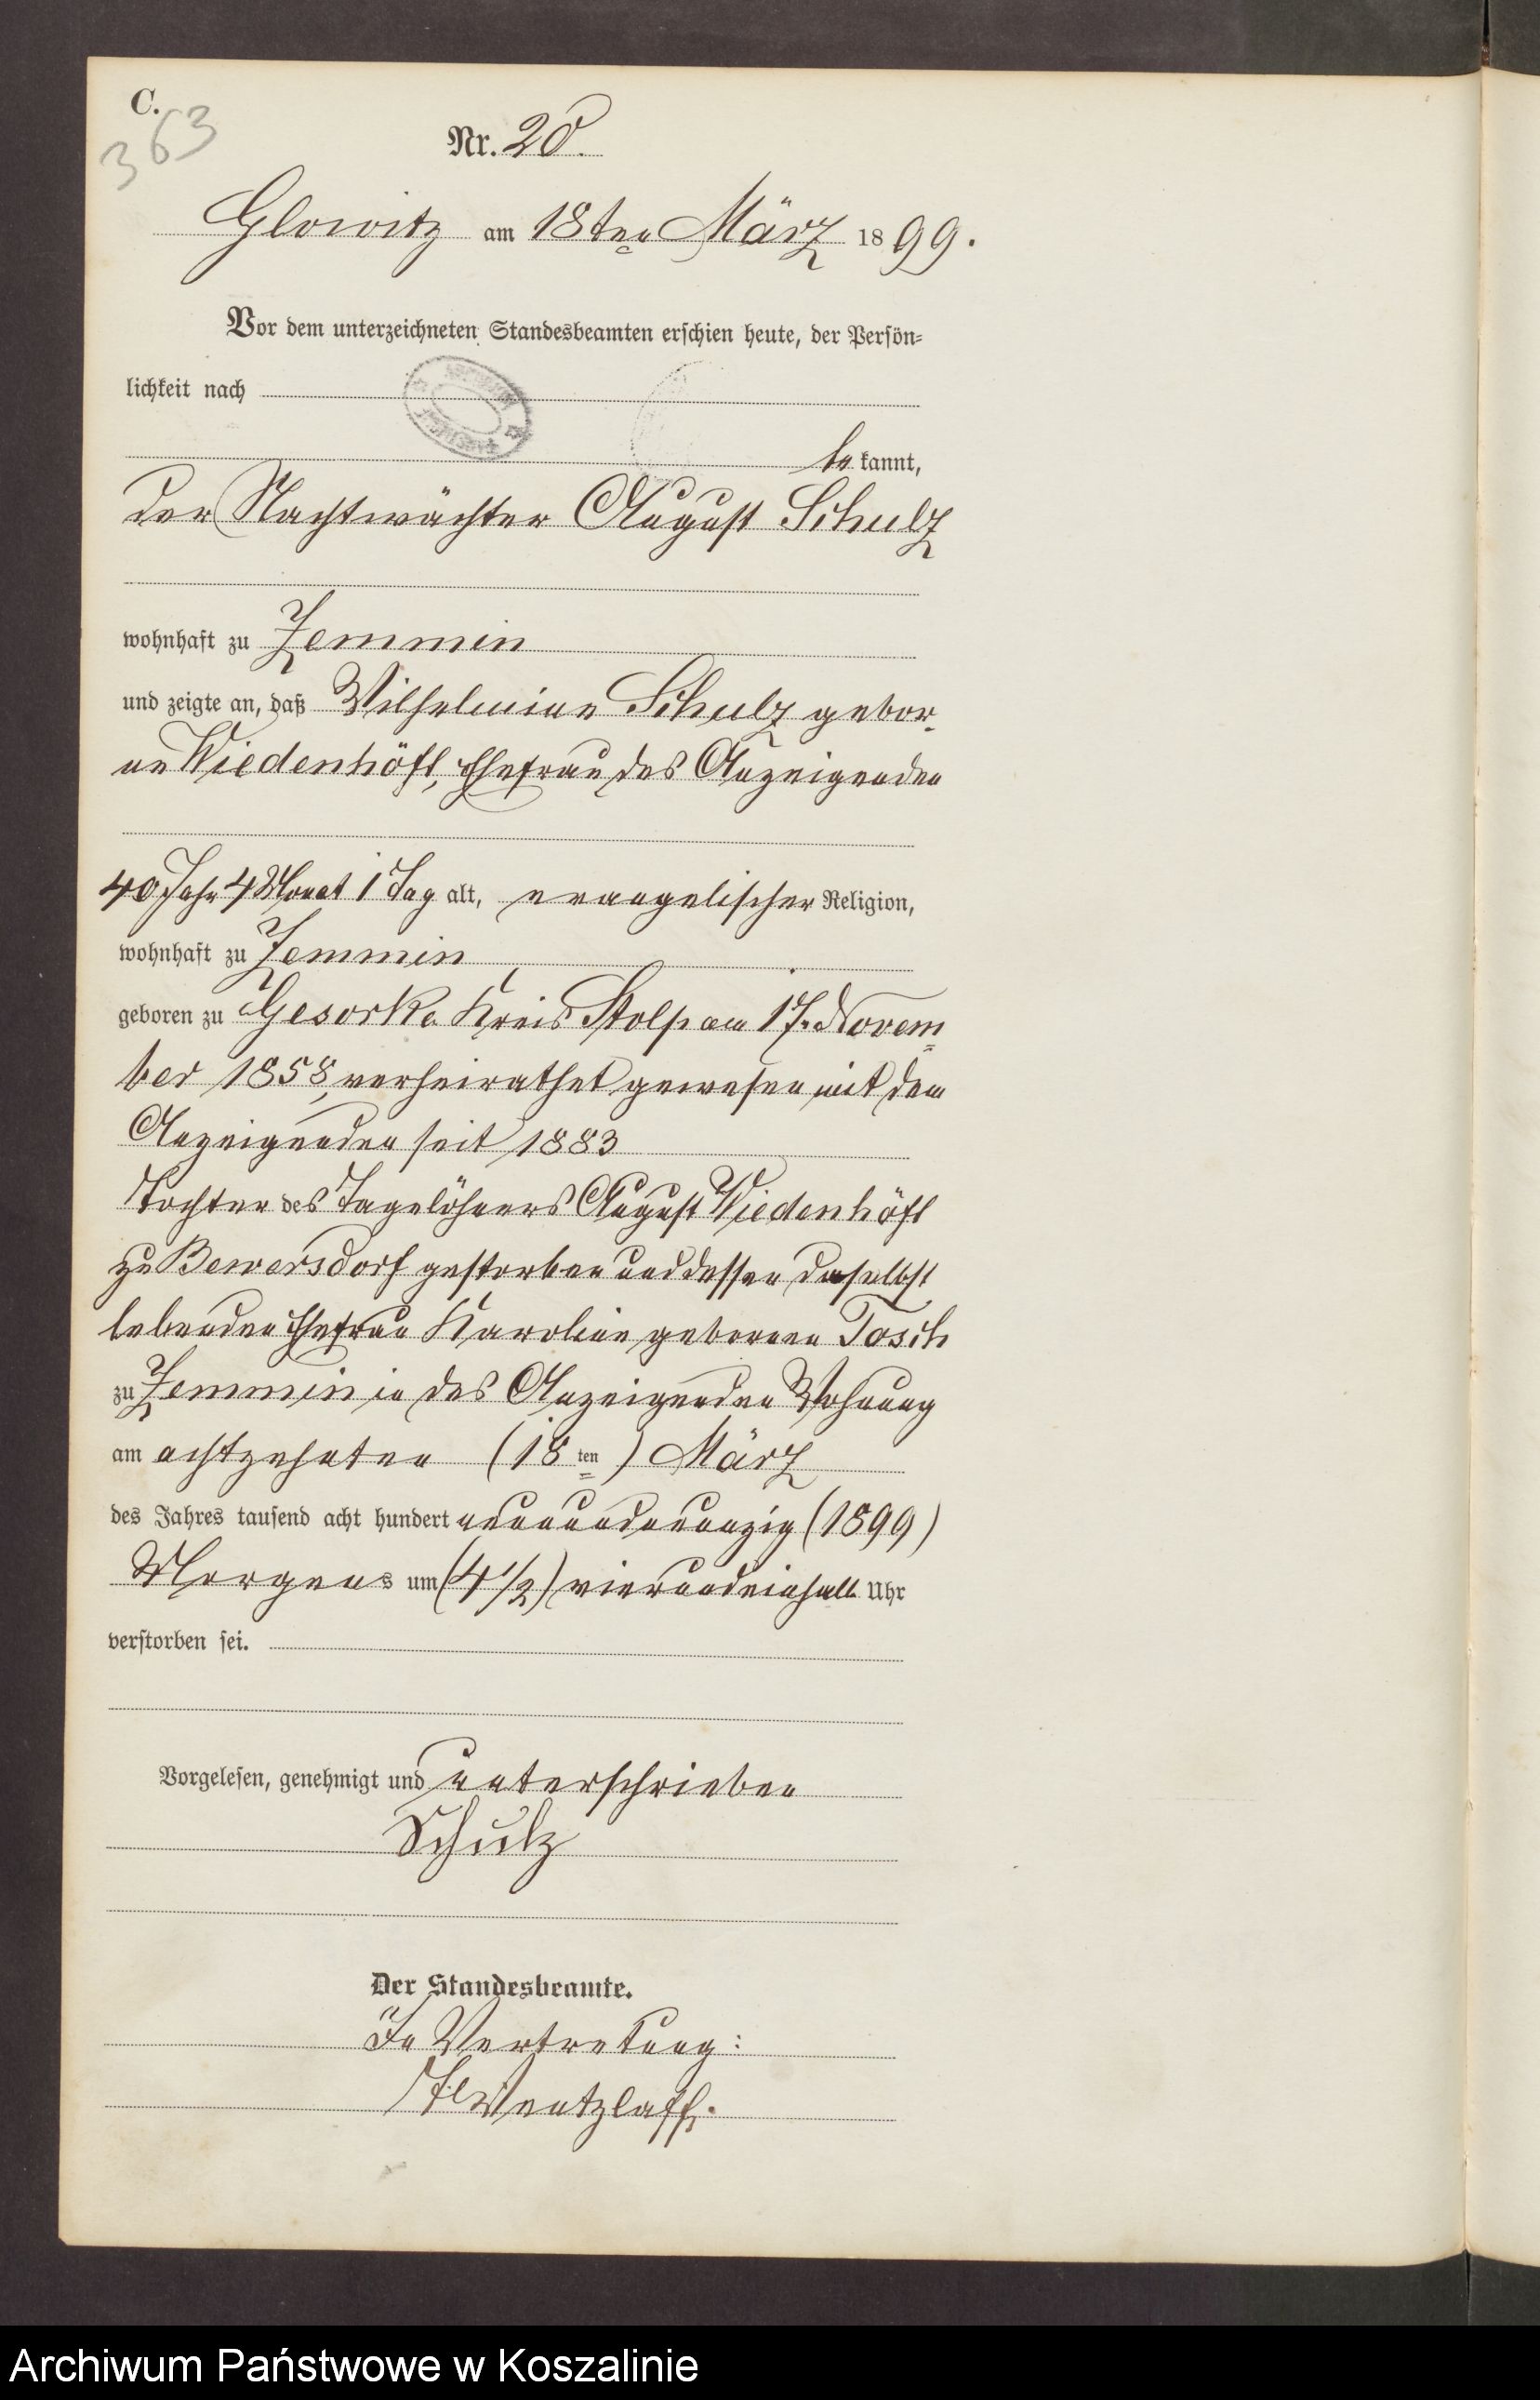 C.
363
Nr. 20.
Glowitz am 18ten März 1899.
Vor dem unterzeichneten Standesbeamten erschien heute, der Persön-
lichkeit nach
be kannt,
der Nachtwächter August Schulz
wohnhaft zu Zemmin
und zeigte an, daß Wilhelmine Schulz gebor-
ne Wiedenhöft, Ehefrau des Anzeigenden
40 Jahr 4 Monat 1 Tag alt, evangelischer Religion,
wohnhaft zu Zemmin
geboren zu Gesorke Kreis Stolp am 17. Novem-
ber 1858, verheirathet gewesen mit dem
Anzeigenden seit 1883
Tochter des Tagelöhners August Wiedenhöft
zu Bewersdorf gestorben und dessen daselbst
lebenden Ehefrau Karoline geborenen Tosch
zu Zemmin in des Anzeigenden Wohnung
am achtzehnten (18ten) März
des Jahres tausend acht hundert neunundneunzig (1899)
Morgens um (4 1/2) vierundeinhalb Uhr
verstorben sei.
Vorgelesen, genehmigt und unterschrieben
Schulz
Der Standesbeamte.
In Vertretung:
Wentzlaff.
Archiwum Państwowe w Koszalinie